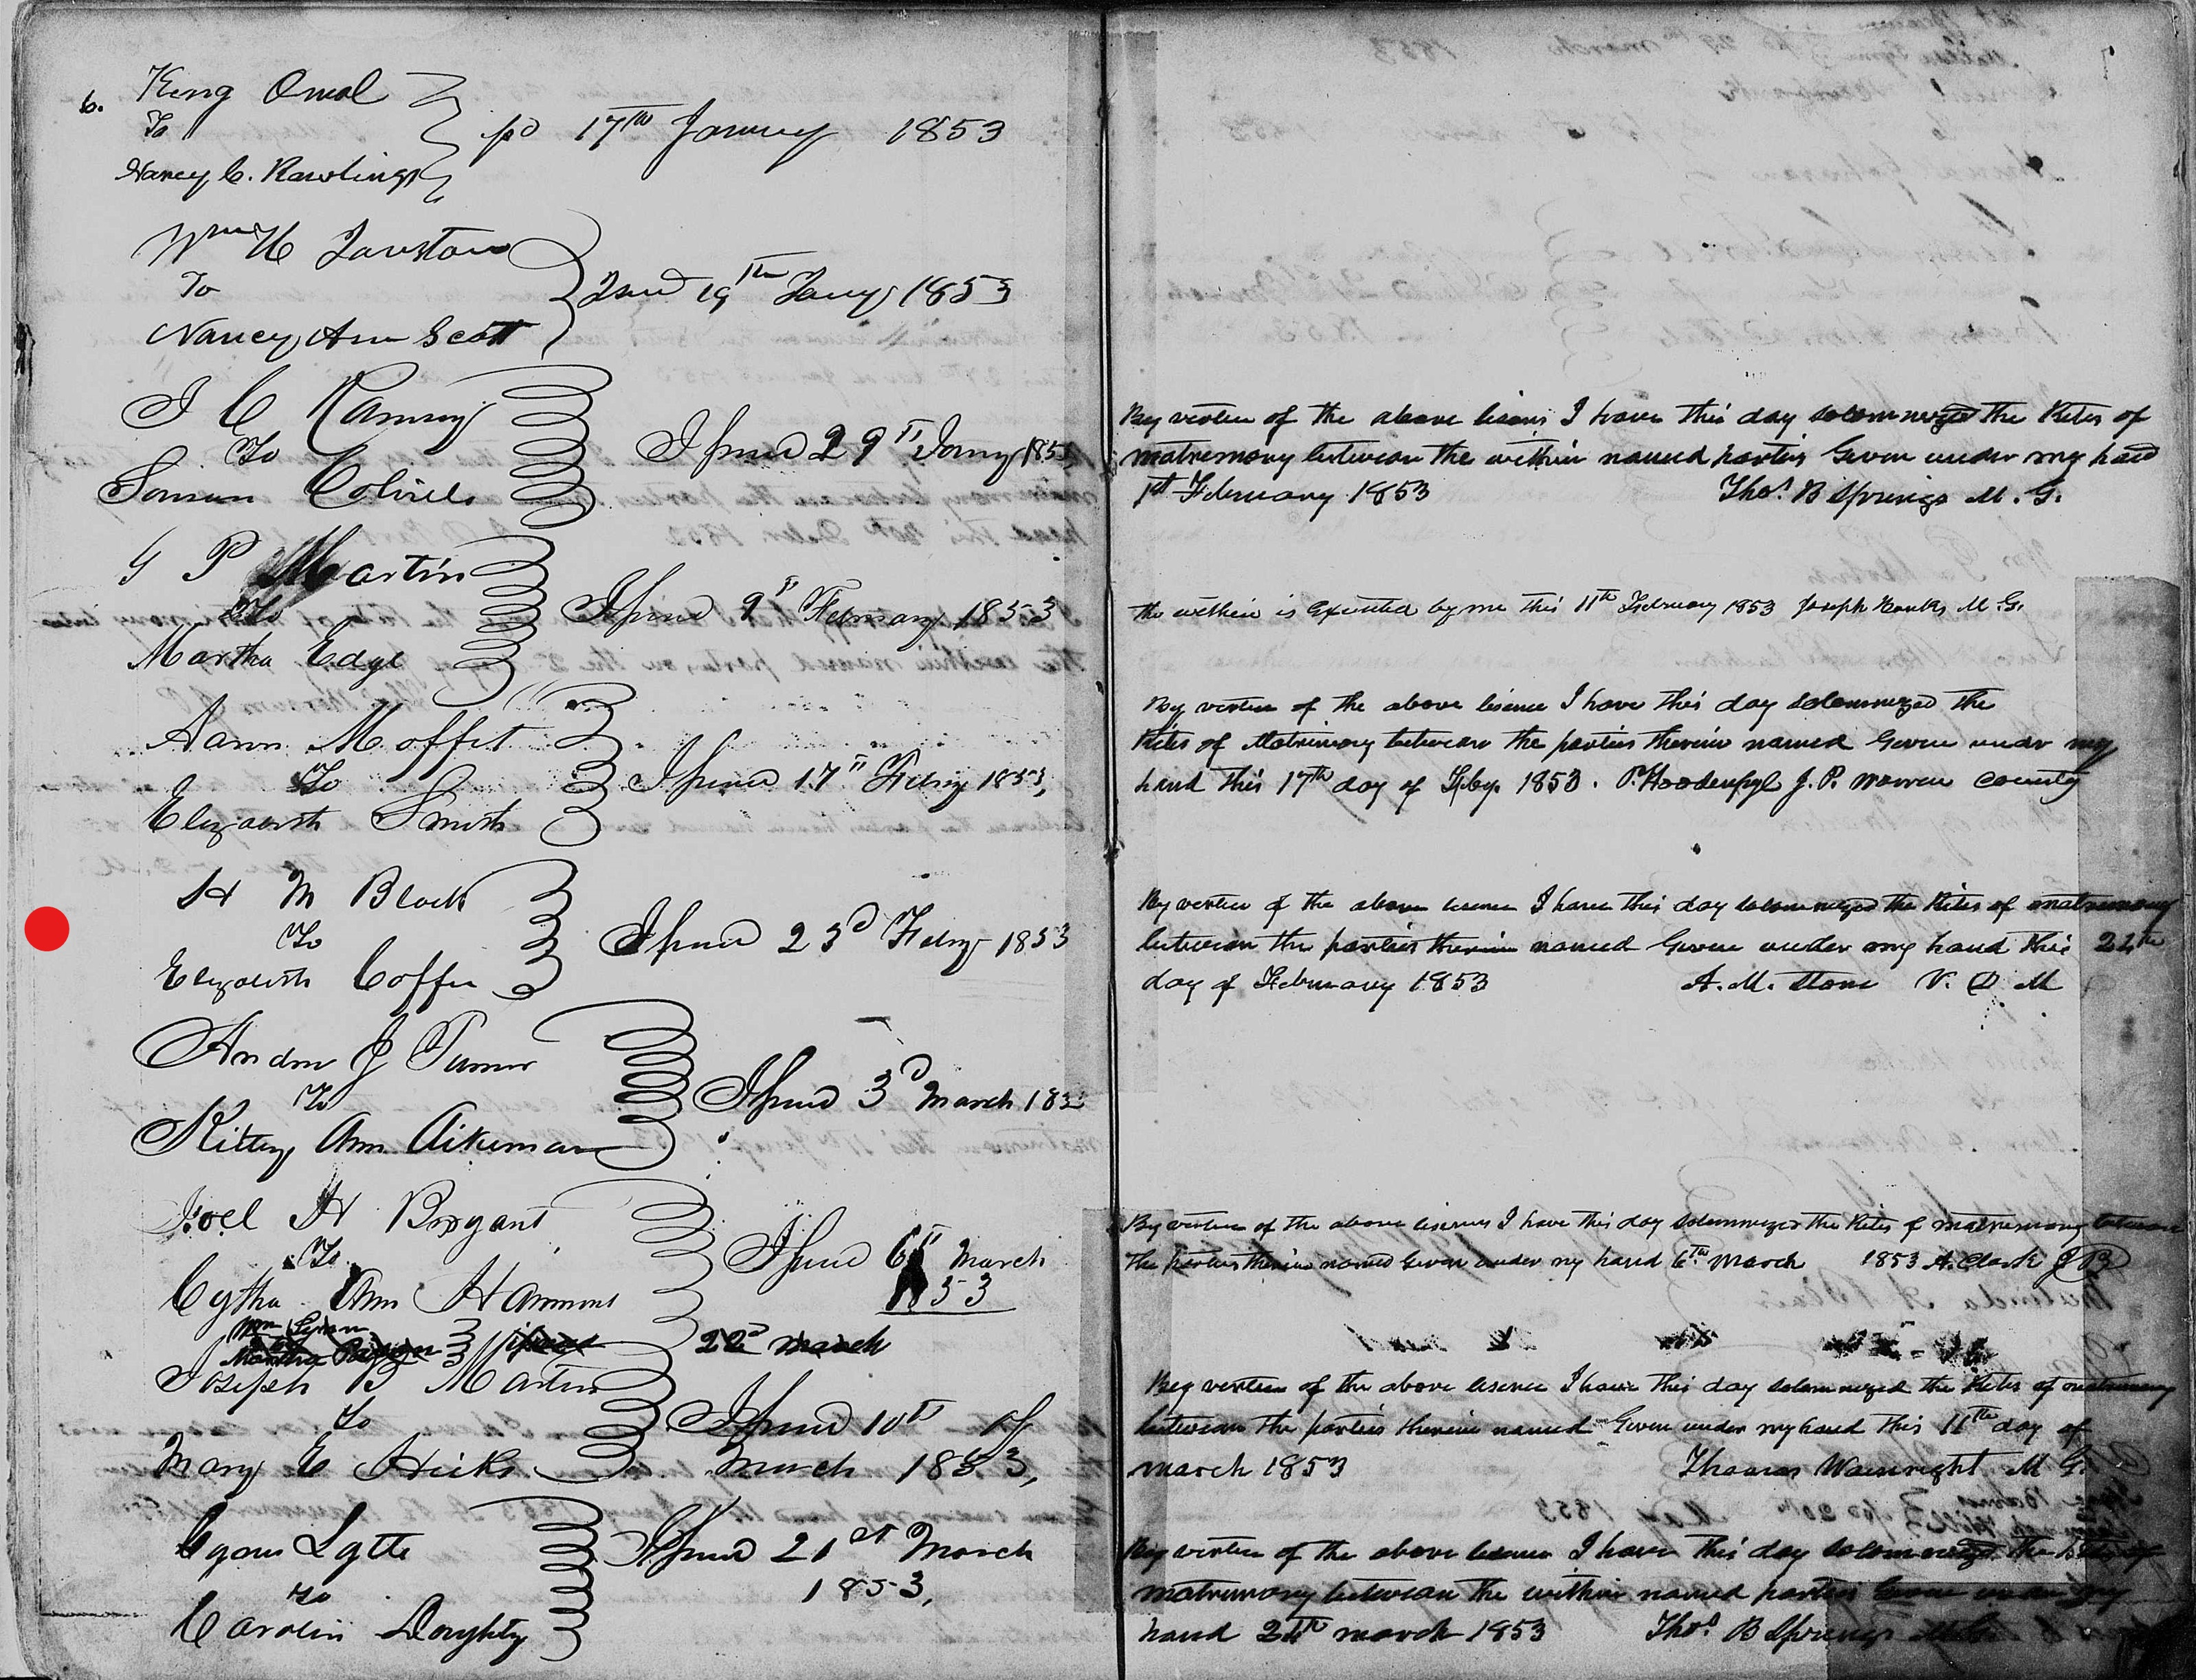 6.
King Omal
To
Nancy C. Rawlings
pd 17th January 1853
Wm H
To
Nancy Ann Scott
Isud 19th Jany 1853
I C Ramsy
To
Issued 29th Jany 1853
By vertue of the above lisens I have this day solemnized the Rites of
matremony between the within named parties Given under my hand
1st February 1853 Thos. B Springs M. G.
G P Martin
To
Martha Edge
Issued 9th February 1853
the within is Executed by me this 11th February 1853 Joseph Banks M. G.
Aaron Moffit
To
Elizabeth Smith
Issued 17th Febry 1853,
By vertue of the above lisence I have this day solemnized the
Rites of Matrimony between the parties therein named Given under my
hand this 17th day of Feby. 1853. P. Hoodenpyl J. P. Warren County
H M Black
To
Elizabeth Coffee
Issued 23d Febry 1853
By vertue of the above lisence I have this day solemnized the Rites of matremony
between the parties therein named Given under my hand this 24th
day of February 1853 A. M. Stone V. D. M
Andrew J Turner
To
Kitty Ann Aikeman
Issued 3d March 185
Joel H Bryant
To
Cytha Ann Hammons
Issued 6th March
1853
By vertue of the above lisens I have this day solemnized the Rites of matremony between
the parties therein named Given under my hand 6th. March 1853 A. Clark J P
Wm
Martha
22d March
Joseph B Martin
To
Mary E Hicks
Issued 10th of
March 1853,
By vertue of the above lisence I have this day solemnized the Rites of matremony
between the parties therein named Given under my hand this 11th day of
march 1853 Thomas Wainwright M G.
Lytle
To
Carolin Doughty
Issued 21st March
1853,
By vertue of the above lisence I have this day solemnized the Rites of
matremony between the within named parties Given under my
hand 24th march 1853 Thos. B Springs